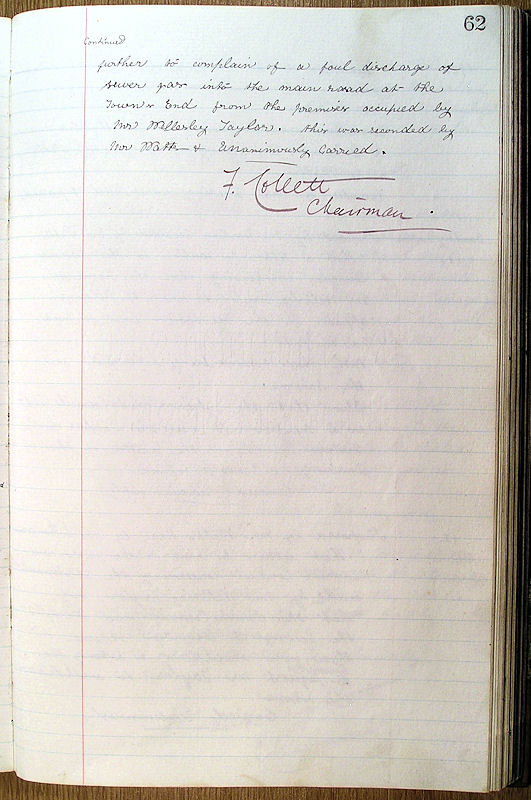 62
Continued
further to complain of a foul discharge of
sewer gas into the main road at the
Town's End from the premises occupied by
Mr Wellesley Taylor. this was seconded by
Mr Watts & Unanimously Carried.
F. Collett
Chairman.